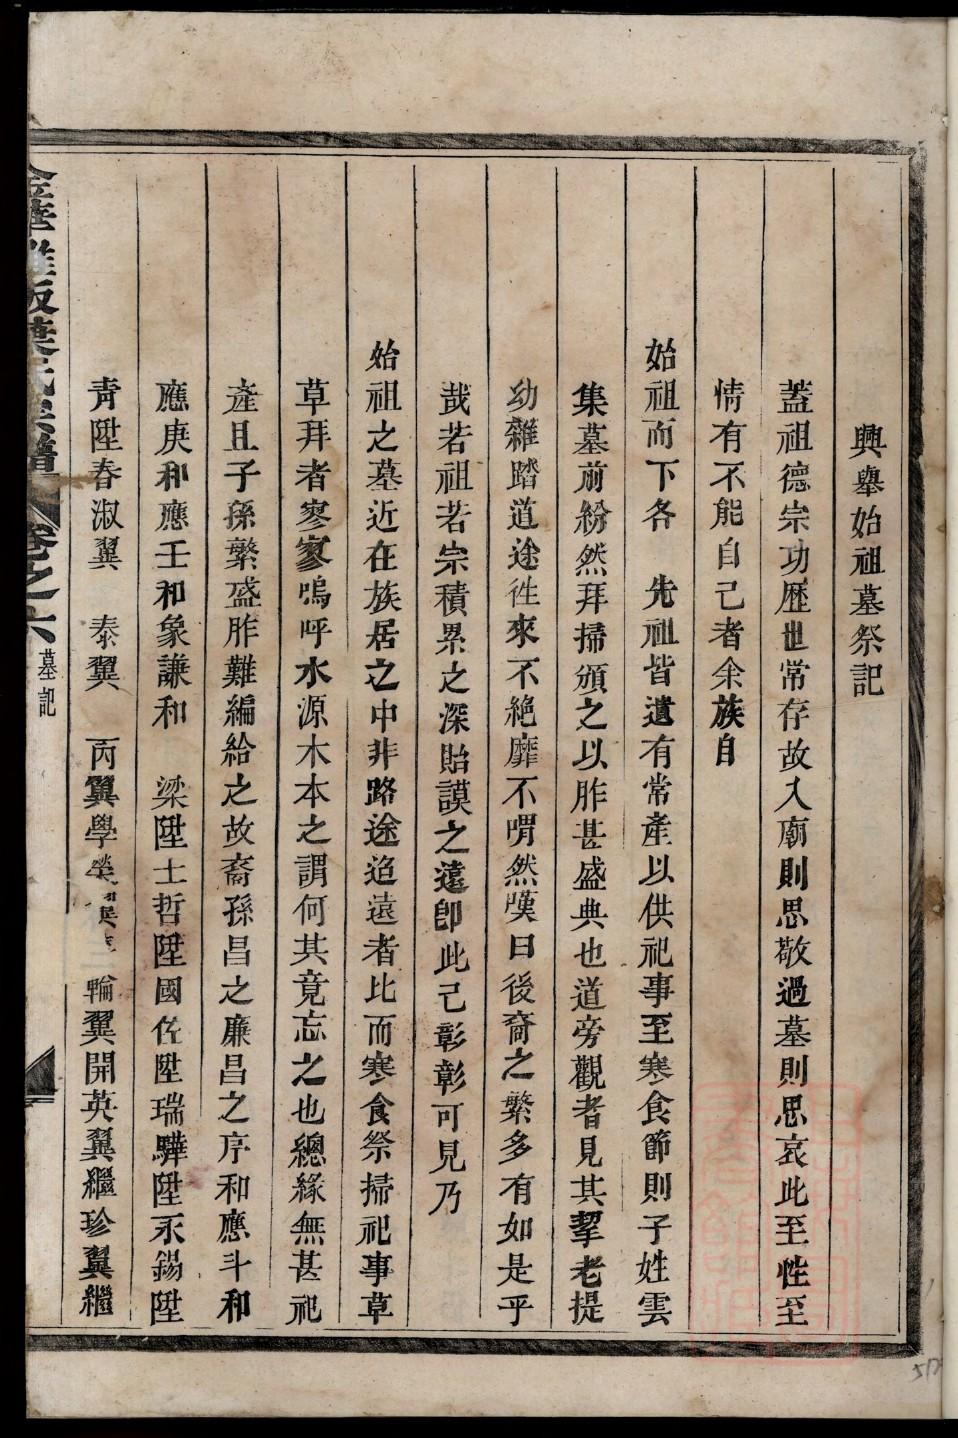 興舉始祖墓祭記
蓋祖德宗功歷世常存故入廟則思敬過墓則思哀此至性至
情有不能自已者余族自
始祖而下各　先祖皆遺有常產以供祀事至寒食節則子姓雲
集墓前紛然拜掃頒之以胙甚盛典也道旁觀者見其挈老提
幼雜踏道途徃來不絕靡不喟然嘆曰後裔之繁多有如是乎
哉若祖若宗積累之深貽謨之遠卽此己彰彰可見乃
始祖之墓近在族居之中非路途迢遠者比而寒食祭掃祀事草
草拜者寥寥嗚呼水源木本之謂何其竟忘之也總緣無甚祀
產且子孫繁盛胙難編給之故裔孫昌之廉昌之序和應斗和
應庚和應壬和象謙和　梁陞士哲陞國佐陞瑞驊陞永錫陞
青陞春淑翼　泰翼　丙翼學　輪翼開英翼繼珍翼繼
金華雅坂葉氏宗譜　卷之六　墓記